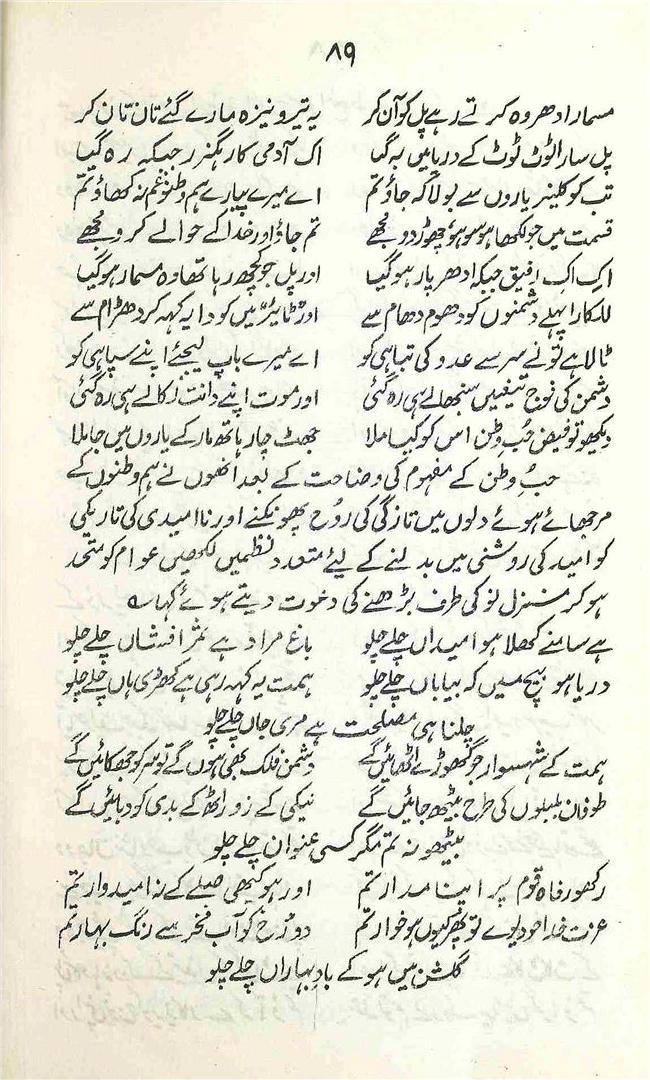 ۸۹
مسمار ادھر وہ کرتے رہے پل کو آن کر یہ تیر و نیزہ مارے گئے تان تان کر
پل سارا ٹوٹ ٹوٹ کے دریا میں بہ گیا اک آدمی کا رہگزر جبکہ رہ گیا
تب کوکلیز یاروں سے بولا کہ جاؤ تم اے میرے پیارے ہم وطنو غم نہ کھاؤ تم
قسمت میں جو لکھا ہو سو ہو چھوڑ دو مجھے تم جاؤ اور خدا کے حوالے کرو مجھے
اک اک رفیق جبکہ ادھر پار ہو گیا اور پل جو کچھ رہا تھا وہ مسمار ہو گیا
للکارا پہلے دشمنوں کو دھوم دھام سے اور ٹائبر میں کودا یہ کہہ کر دھڑام سے
ٹالا ہے تونے سر سے عدو کی تباہی کو اے میرے باپ لیجئے اپنے سپاہی کو
دشمن کی فوج تیغیں سنبھالے ہی رہ گئی اور موت اپنے دانت نکالے ہی رہ گئی
دیکھو تو فیض حُبِ وطن اس کو کیا ملا جھٹ چار ہاتھ مار کے یاروں میں جا ملا
حبِ وطن کے مفہوم کی وضاحت کے بعد انھوں نے ہم وطنوں کے
مرجھائے ہوئے دلوں میں تازگی کی روح پھونکنے اور ناامیدی کی تاریکی
کو امید کی روشنی میں بدلنے کے لیئے متعدد نظمیں لکھیں عوام کو متحد
ہو کر منزل نو کی طرف بڑھنے کی دعوت دیتے ہوئے کہا ؎
ہے سامنے کھلا ہوا میداں چلے چلو باغ مراد ہے ثمر افشاں چلے چلو
دریا ہو بیچ میں کہ بیاباں چلے چلو ہمت یہ کہہ رہی ہے کھڑی ہاں چلے چلو
چلنا ہی مصلحت ہے مری جاں چلے چلو
ہمت کے شہسوار جو گھوڑے اٹھائیں گے دشمن فلک بھی ہوں گے تو سر کو جھکائیں گے
طوفان بلبلوں کی طرح بیٹھ جائیں گے نیکی کے زور اٹھ کے بدی کو دبائیں گے
بیٹھو نہ تم مگر کسی عنوان چلے چلو
رکھو رفاہ قوم پر اپنا مدار تم اور ہو کبھی صلے کے نہ امیدوار تم
عزت خدا جو دیوے تو پھر کیوں ہو خوار تم دو رُخ کو آب فخر سے رنگ بہار تم
گلشن میں ہو کے باد بہاراں چلے چلو